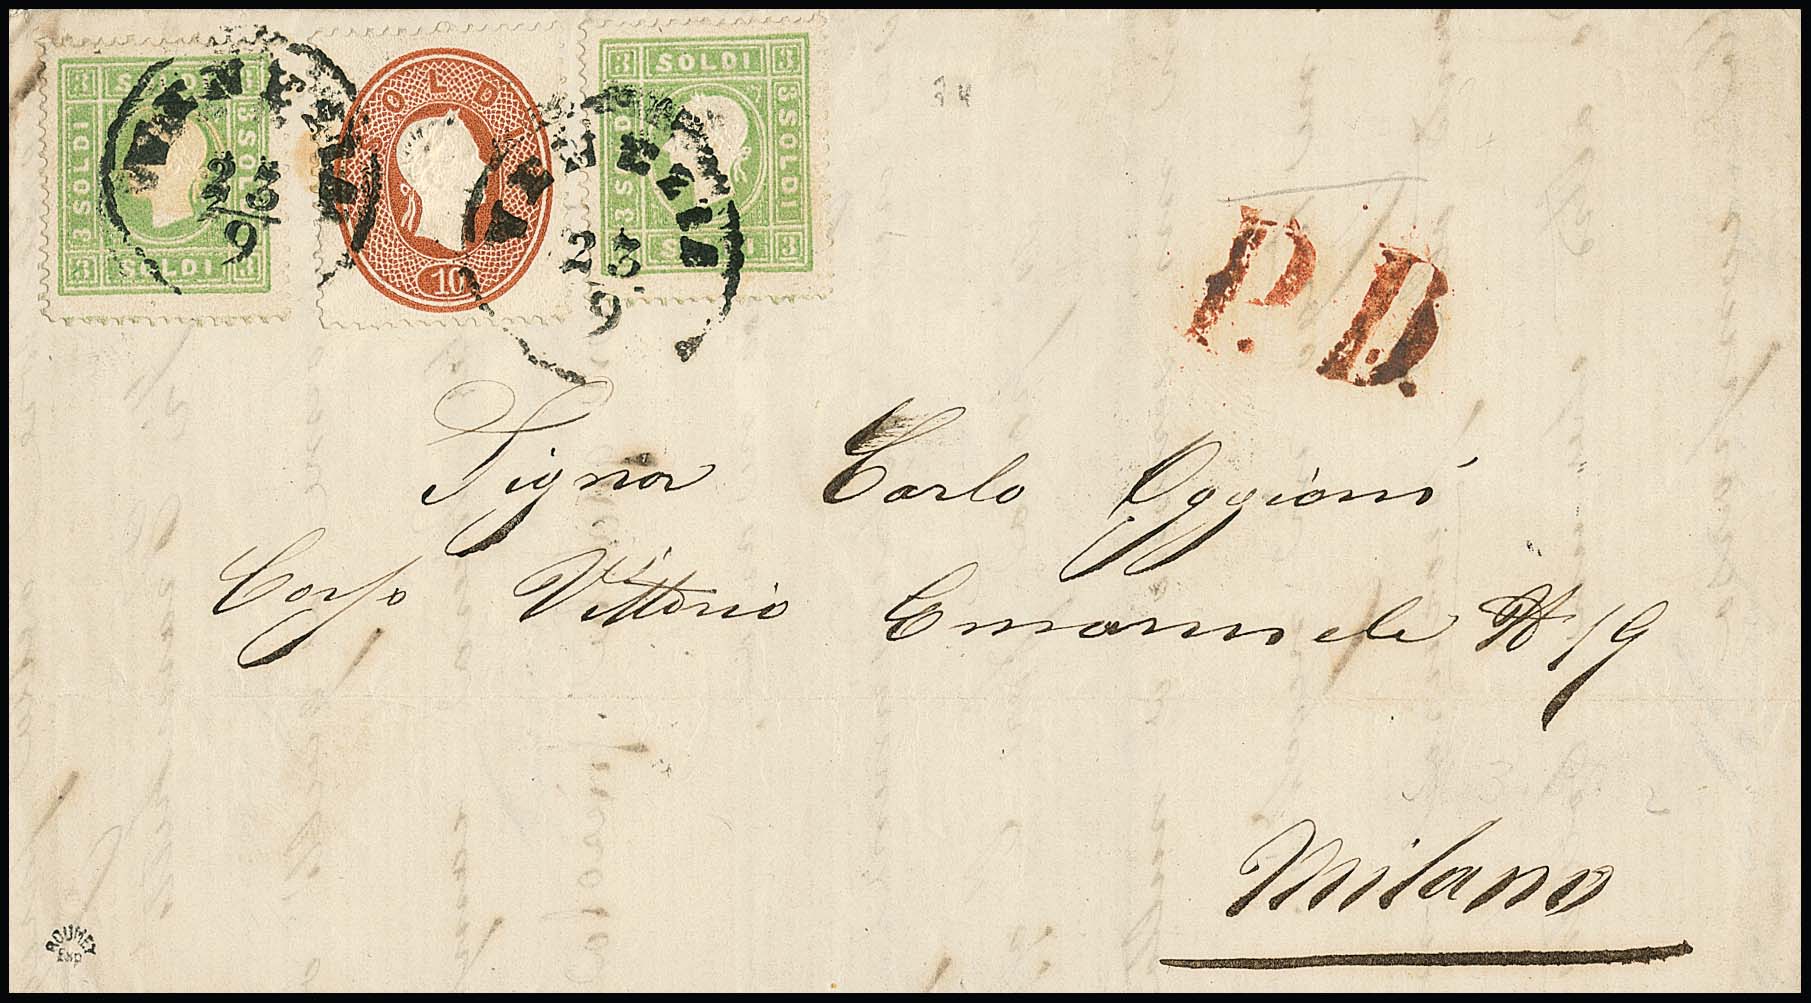 3 SOLDI 3
SOLDI
3 SOLDI 3
SOLDI
10
3 SOLDI 3
SOLDI
3 SOLDI 3
VENEZIA
23
9
VENEZIA
23
9
P.D.
Signor Carlo Oggioni
Corso Vittorio Emanuele N 19
Milano
ROUMET
EXP